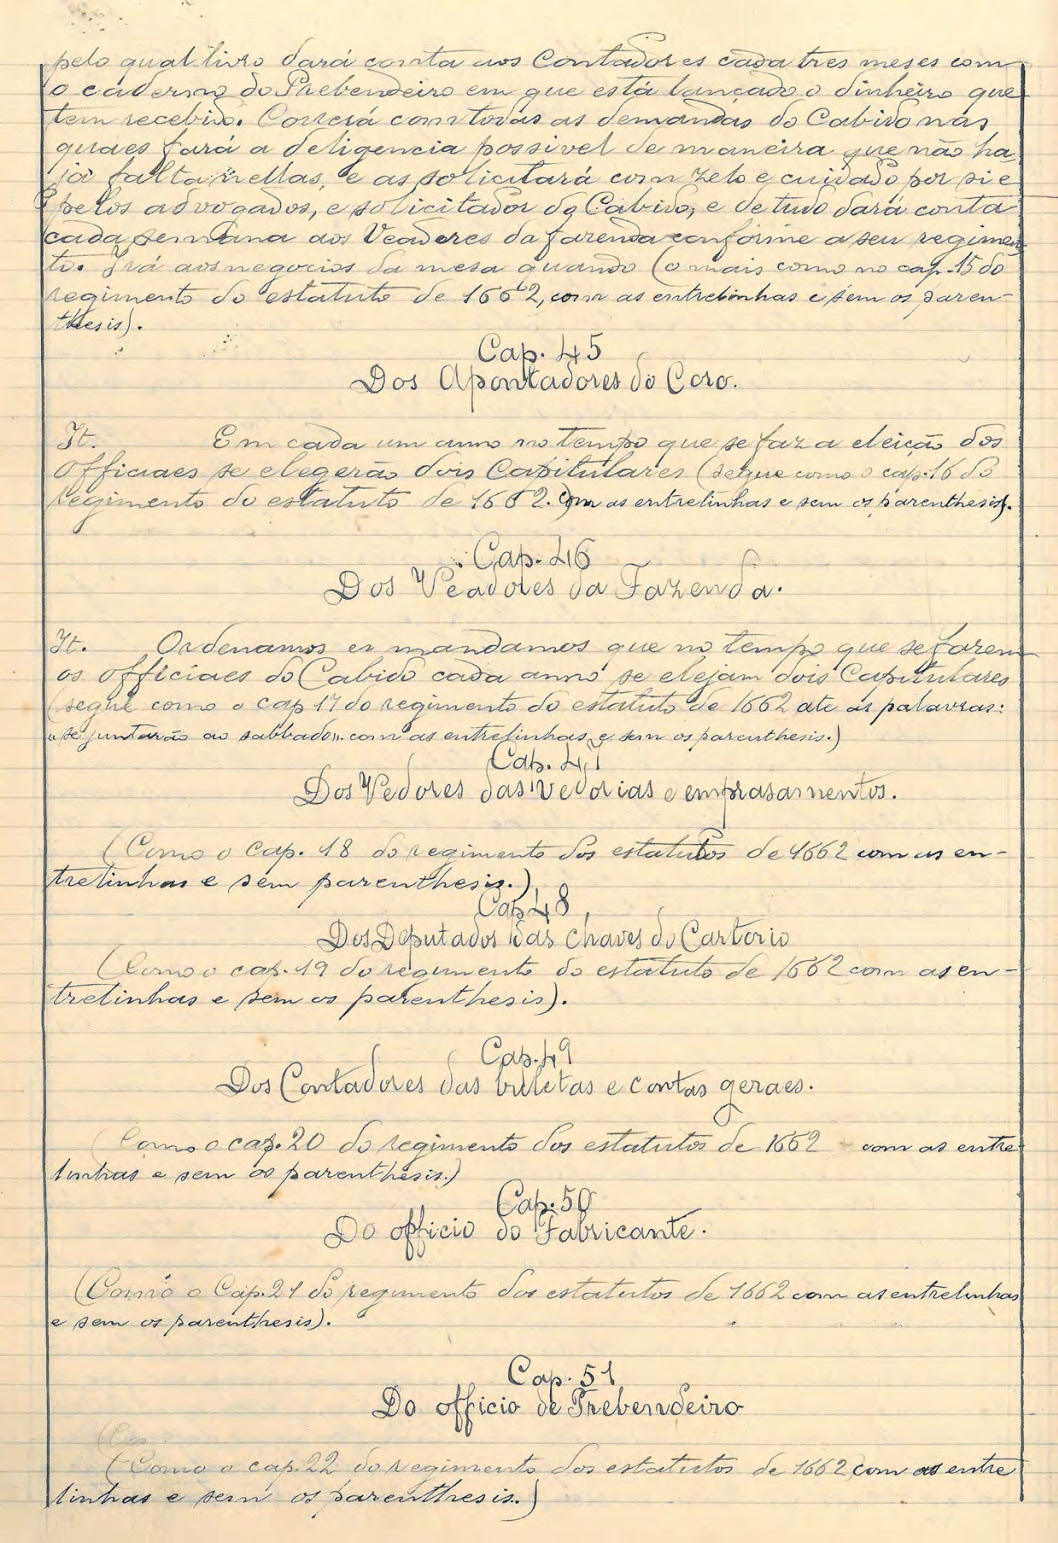 pelo qual livro dará conta aos Contadores cada tres meses com
o caderno do Prebendeiro em que está lançado o dinheiro que
tem recebido. Correrá com todas as demandas do Cabido nas
quaes fará a deligencia possivel de maneira que não ha-
ja falta nellas, e as solicitará com zelo e cuidado por si e
pelos advogados, e solicitador do Cabido, e de tudo dará conta
cada semana aos Veadores da fazenda conforme a seu regimen-
to. Irá aos negocios da mesa quando (o mais como no cap. 15 do
regimento do estatuto de 1662, com as entrelinhas e sem os paren-
thesis).
Cap. 45
Dos Apontadores do Coro.
It. Em cada um anno no tempo que se faz a eleição dos
Officiaes se elegerão dois Capitulares (segue como o cap. 16 do
regimento do estatuto de 1662. com as entrelinhas e sem os parenthesis).
Cap. 46
Dos Veadores da Fazenda.
It. Ordenamos e mandamos que no tempo que se fazem
os officiaes do Cabido cada anno se elejam dois Capitulares
(segue como o cap 17 do regimento do estatuto de 1662 ate ás palavras:
"se juntarão ao sabbado". com as entrelinhas e sem os parenthesis.)
Cap. 47
Dos Vedores das vedorias e emprasamentos.
(Como o cap. 18 do regimento dos estatutos de 1662 com as en-
trelinhas e sem parenthesis.)
Cap 48
Dos Deputados das chaves do Cartorio
(Como o cap. 19 do regimento do estatuto de 1662 com as en-
trelinhas e sem os parenthesis).
Cap. 49
Dos Contadores das buletas e contas geraes.
(Como o cap. 20 do regimento dos estatutos de 1662 com as entre
linhas e sem os parenthesis.)
Cap. 50
Do officio do Fabricante.
(Como o Cap. 21 do regimento dos estatutos de 1662 com as entrelinhas
e sem os parenthesis).
Cap. 51
Do officio de Prebendeiro
(Como o cap. 22 do regimento dos estatutos de 1662 com as entre
linhas e sem os parenthesis.)